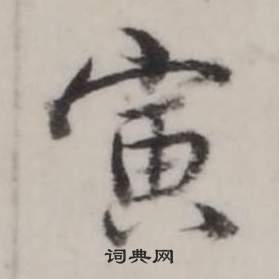 寅
词典网